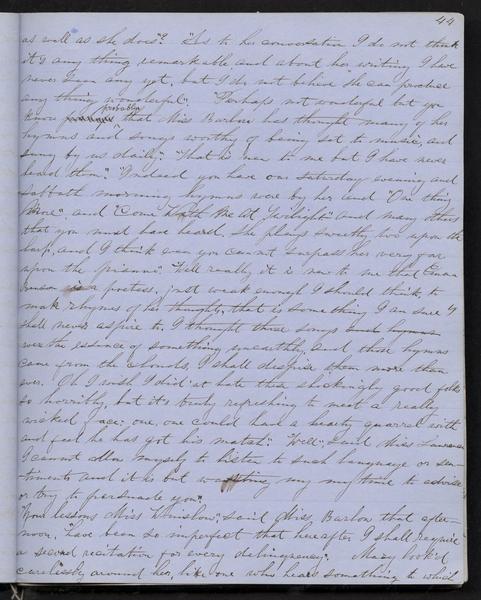 44
as well as she does"? "As to her conversation I do not think
it's any thing remarkable and about her writing I have
never seen any yet, but I do not believe she can produce
any thing wonderful". "Perhaps not wonderful but you
know probably that Miss Barlow has thought many of her
hymns and songs worthy of being set to music, and
sung by us daily". "That is new to me but I have never
heard them". "Indeed you have our saturday evening and
Sabbath morning hymns were by her and "One thing
More" and "Come With Me At Twilight" and many others
that you must have heard. She plays sweetly too upon the
harp, and I think even you cannot surpass her very far
upon the pianno". "Well really it is new to me that
is a poetess, just weak enough I should think, to
make rhymes of her thought, that is something I am sure I
shall never aspire to, I thought those songs and hymns
were the essence of something unearthly, and those hymns
came from the clouds, I shall despise them more than
ever. Oh I wish I did'nt hate this shockingly good folks
so horribly, but it's truly refreshing to meet a really
wicked face: one, one could have a hearty quarrel with
and feel he has got his match". "Well" said Miss
I cannot allow myself to listen to such language or sen-
timents and it is but wasting my mytime to advise
or try to persuade you".
"Your lessons Miss Winslow", said Miss Barlow that after-
noon, "have been so imperfect that hereafter I shall require
a second recitation for every delinquency". Mary look'd
carelessly around her, like one who hears something to which